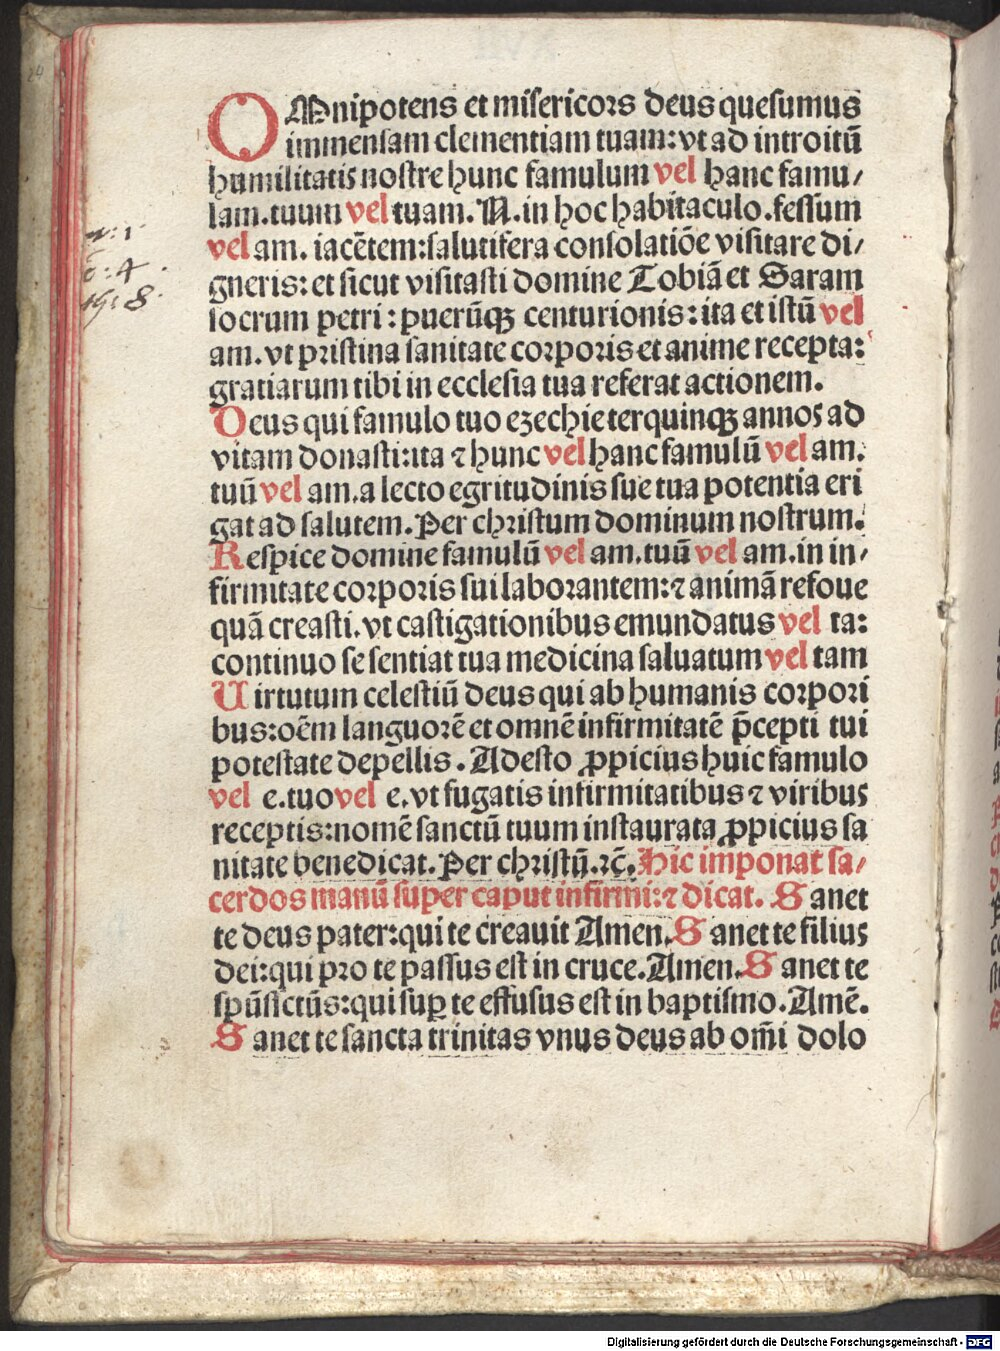 24
OMnipotens et misericors deus quesumus
immensam clementiam tuam: vt ad introitū
humilitatis nostre hunc famulum vel hanc famu⸗
lam. tuum vel tuam. N. in hoc habitaculo. fessum
vel am. iacētem: salutifera consolatiōe visitare di⸗
gneris: et sicut visitasti domine Tobiā et Saram
socrum petri: puerūqꝫ centurionis: ita et istū vel
am. vt pristina sanitate corporis et anime recepta:
gratiarum tibi in ecclesia tua referat actionem.
Deus qui famulo tuo ezechie terquinqꝫ annos ad
vitam donasti: ita ⁊ hunc vel hanc famulū vel am.
tuū vel am. a lecto egritudinis sue tua potentia eri
gat ad salutem. Per christum dominum nostrum.
Respice domine famulū vel am. tuū vel am. in in⸗
firmitate corporis sui laborantem: ⁊ animā refoue
quā creasti. vt castigationibus emundatus vel ta:
continuo se sentiat tua medicina saluatum vel tam
Uirtutum celestiū deus qui ab humanis corpori
bus: oēm languorē et omnē infirmitatē p̄cepti tui
potestate depellis. Adesto ꝓpicius huic famulo
vel e. tuo vel e. vt fugatis infirmitatibus ⁊ viribus
receptis: nomē sanctū tuum instaurata ꝓpicius sa
nitate benedicat. Per christū. ⁊c̄. Hic imponat sa⸗
cerdos manū super caput infirmi: ⁊ dicat. Sanet
te deus pater: qui te creauit Amen. Sanet te filius
dei: qui pro te passus est in cruce. Amen. Sanet te
spūssctūs: qui suꝑ te effusus est in baptismo. Amē.
Sanet te sancta trinitas vnus deus ab om̄i dolo
Digitalisierung gefördert durch die Deutsche Forschungsgemeinschaft - DFG